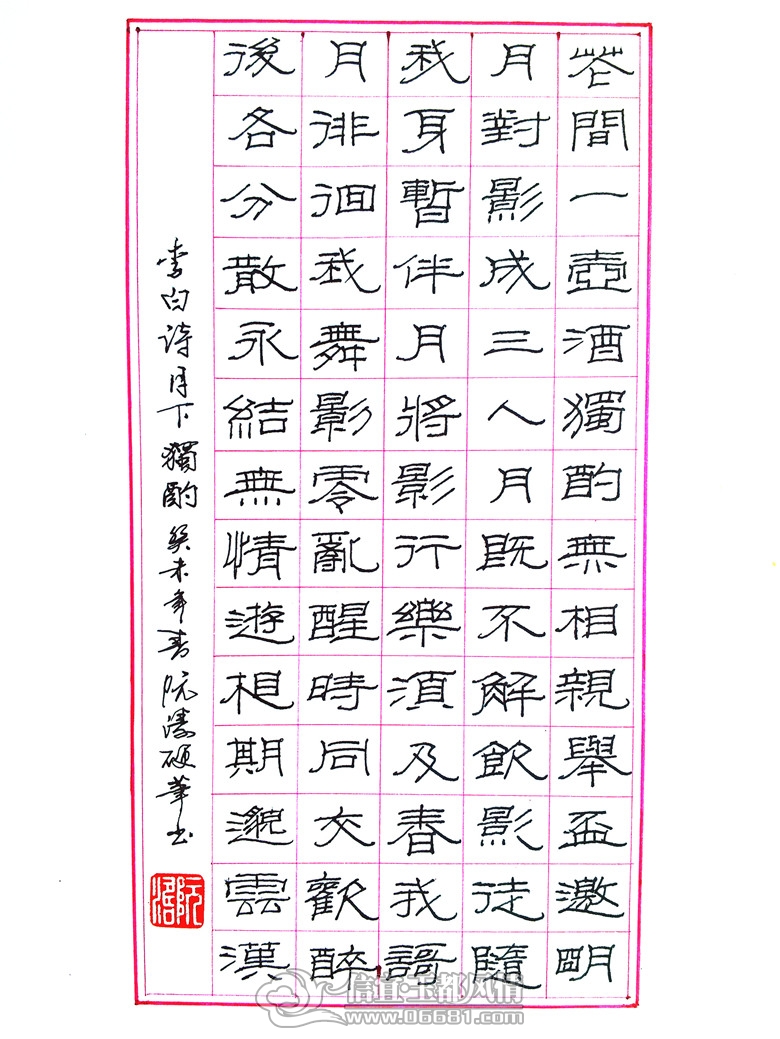 花間一壺酒獨酌無相親舉盃邀朙
月對影成三人月既不解飲影徒隨
我身暫伴月將影行樂須及春我謌
月徘徊我舞影零亂醒時同交歡醉
後各分散永結無情遊相期邈雲漢
李白诗月下獨酌 癸未年春 阮 硬筆书
信宜·玉都风情
www.06681.com